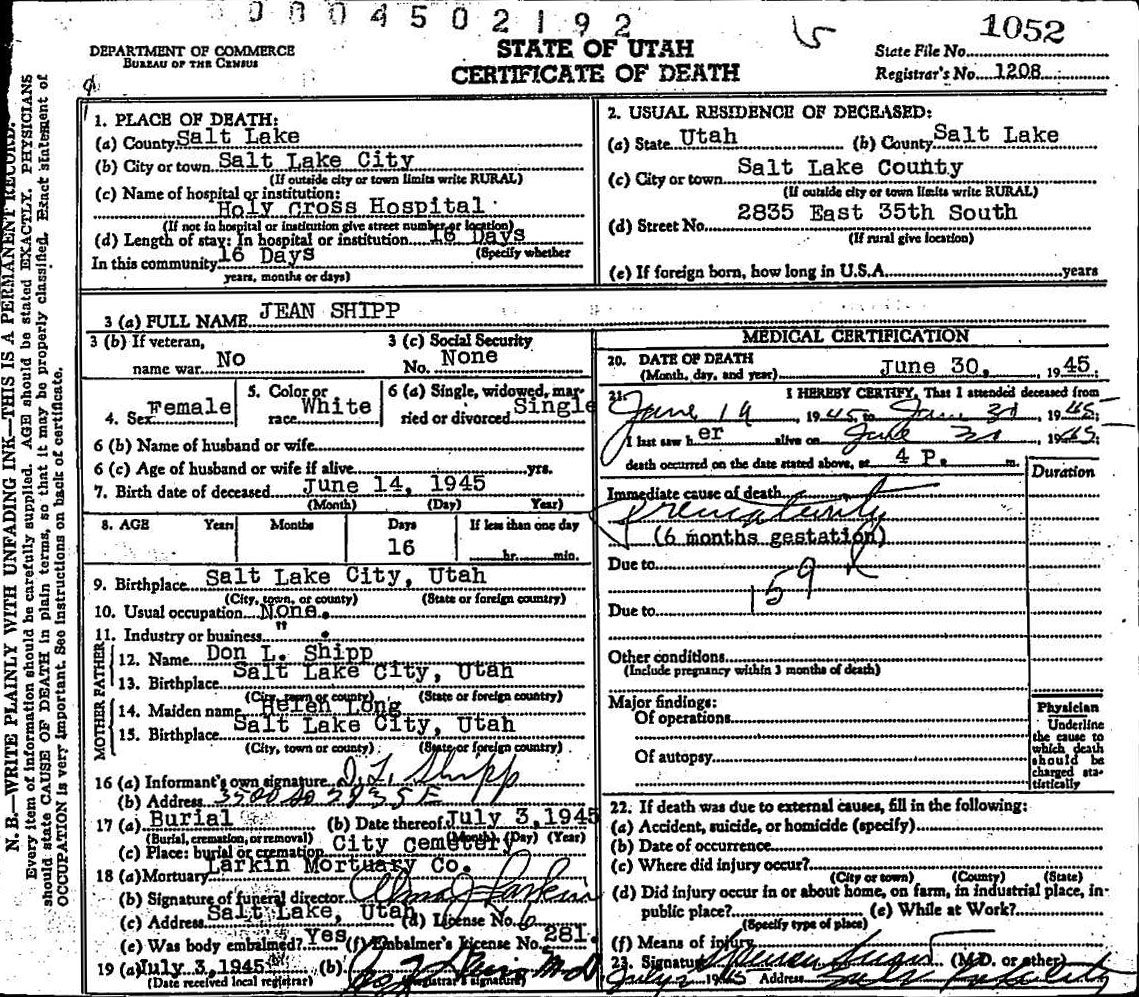 0004502192
1052
DEPARTMENT OF COMMERCE
BUREAU OF THE CENSUS
STATE OF UTAH
CERTIFICATE OF DEATH
State File No.
Registrar's No. 1208
N. B.—WRITE PLAINLY WITH UNFADING INK—THIS IS A PERMANENT RECORD.
Every item of information should be carefully supplied. AGE should be stated EXACTLY. PHYSICIANS
should state CAUSE OF DEATH in plain terms, so that it may be properly classified. Exact statement of
OCCUPATION is very important. See instructions on back of certificate.
1. PLACE OF DEATH:
(a) County Salt Lake
(b) City or town Salt Lake City
(If outside city or town limits write RURAL)
(c) Name of hospital or institution:
Holy Cross Hospital
(If not in hospital or institution give street number or location)
(d) Length of stay: In hospital or institution 16 Days
(Specify whether
In this community 16 Days
years, months or days)
2. USUAL RESIDENCE OF DECEASED:
(a) State Utah (b) County Salt Lake
(c) City or town Salt Lake County
(If outside city or town limits write RURAL)
(d) Street No. 2835 East 35th South
(If rural give location)
(e) If foreign born, how long in U.S.A. years
3 (a) FULL NAME JEAN SHIPP
3 (b) If veteran,
name war No
3 (c) Social Security
No. None
4. Sex Female
5. Color or
race White
6 (a) Single, widowed, mar-
ried or divorced Single
6 (b) Name of husband or wife
6 (c) Age of husband or wife if alive yrs.
7. Birth date of deceased June 14, 1945
(Month) (Day) Year)
8. AGE Years Months Days If less than one day
16 hr. min.
9. Birthplace Salt Lake City, Utah
(City, town, or county) (State or foreign country)
10. Usual occupation None.
11. Industry or business " .
FATHER
12. Name Don L. Shipp
13. Birthplace Salt Lake City, Utah
(City, town or county) (State or foreign country)
MOTHER
14. Maiden name Helen Long
15. Birthplace Salt Lake City, Utah
(City, town or county) (State or foreign country)
16 (a) Informant's own signature D. L. Shipp
(b) Address 3500 So 2835 E
17 (a) Burial (b) Date thereof July 3, 1945
(Burial, cremation, or removal) (Month) (Day) (Year)
(c) Place: burial or cremation City Cemetery
18 (a) Mortuary Larkin Mortuary Co.
(b) Signature of funeral director Larkin
(c) Address Salt Lake, Utah (d) License No. 6
(e) Was body embalmed? Yes (f) Embalmer's License No. 281.
19 (a) July 3, 1945 (b)
(Date received local registrar) (Registrar's signature)
MEDICAL CERTIFICATION
20. DATE OF DEATH
(Month, day, and year) June 30, 1945.
21. I HEREBY CERTIFY, That I attended deceased from
June 19, 1945 to June 30, 1945;
I last saw her alive on June 30, 1945;
death occurred on the date stated above, at 4 P. m.
Duration
Immediate cause of death
Prematurity
(6 months gestation)
Due to
159
Due to
Other conditions
(Include pregnancy within 3 months of death)
Major findings:
Of operations
Of autopsy
Physician
Underline
the cause to
which death
should be
charged sta-
tistically
22. If death was due to external causes, fill in the following:
(a) Accident, suicide, or homicide (specify)
(b) Date of occurrence
(c) Where did injury occur?
(City or town) (County) (State)
(d) Did injury occur in or about home, on farm, in industrial place, in-
public place? (e) While at Work?
(Specify type of place)
(f) Means of injury
23. Signature (M.D. or other)
1945 Address Salt Lake City